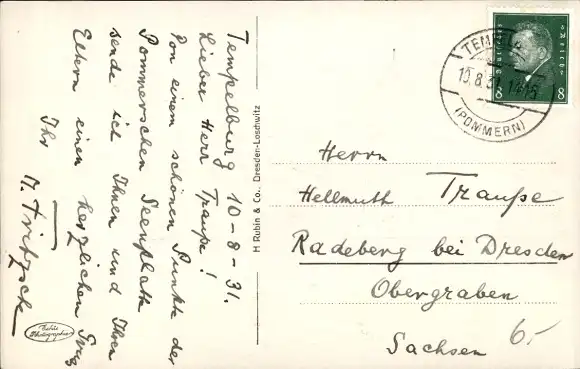 Tempelburg 10-8-31.
Lieber Herr Traupe!
Von einem schönen Punkte der
Pommerschen Seenplatte
sende ich Ihnen und Ihren
Eltern einen herzlichen Gruß
Ihr
H. Fritzsche
Echte
Photographie
H Rubin & Co., Dresden-Loschwitz
Deutsches Reich
8 8
TEMPELB
10.8.31
(POMMERN)
Herrn
Hellmuth Traupe
Radeberg bei Dresden
Obergraben
Sachsen
6.-